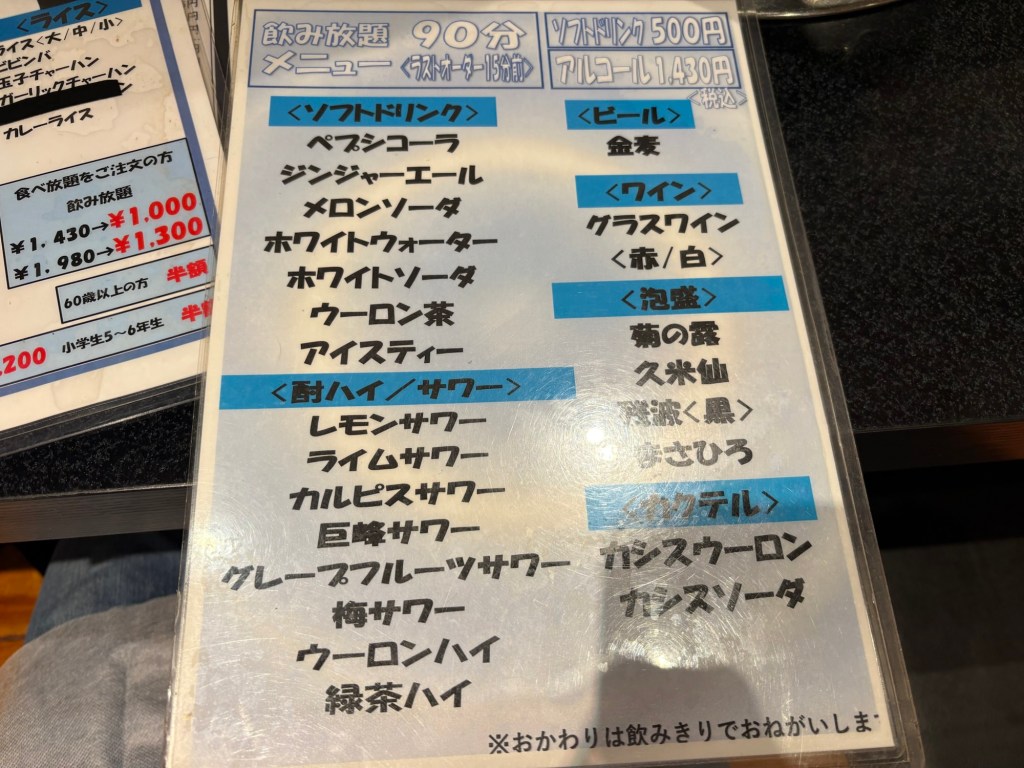 <ライス>
ライス<大/中/小
ビビンバ
玉子チャーハン
カレーライス
食べ放題をご注文の方
飲み放題
¥1,430→¥1,000
¥1,980→¥1,300
60歳以上の方 半額
小学生5～6年生 半額
,200
飲み放題 90分
メニュー <ラストオーダー15分前>
ソフトドリンク 500円
アルコール 1,430円
<税込>
<ソフトドリンク>
ペプシコーラ
ジンジャーエール
メロンソーダ
ホワイトウォーター
ホワイトソーダ
ウーロン茶
アイスティー
<酎ハイ/サワー>
レモンサワー
ライムサワー
カルピスサワー
巨峰サワー
グレープフルーツサワー
梅サワー
ウーロンハイ
緑茶ハイ
<ビール>
金麦
<ワイン>
グラスワイン
<赤/白>
<泡盛>
菊の露
久米仙
残波<黒>
まさひろ
<カクテル>
カシスウーロン
カシスソーダ
※おかわりは飲みきりでおねがいしま